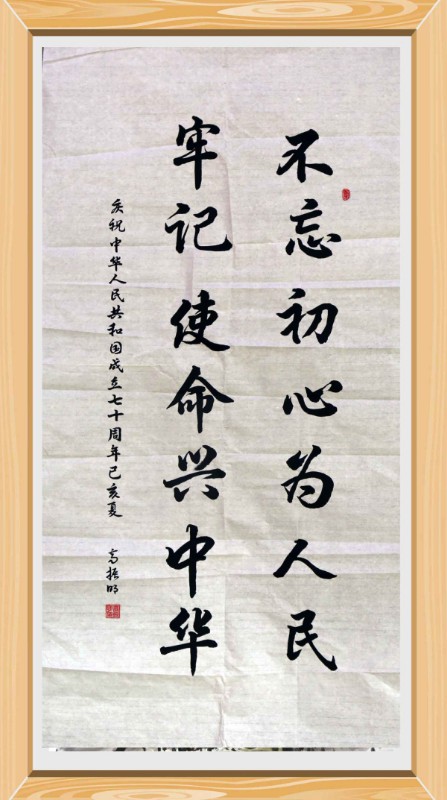 不忘初心为人民
牢记使命兴中华
庆祝中华人民共和国成立七十周年己亥夏 高振明